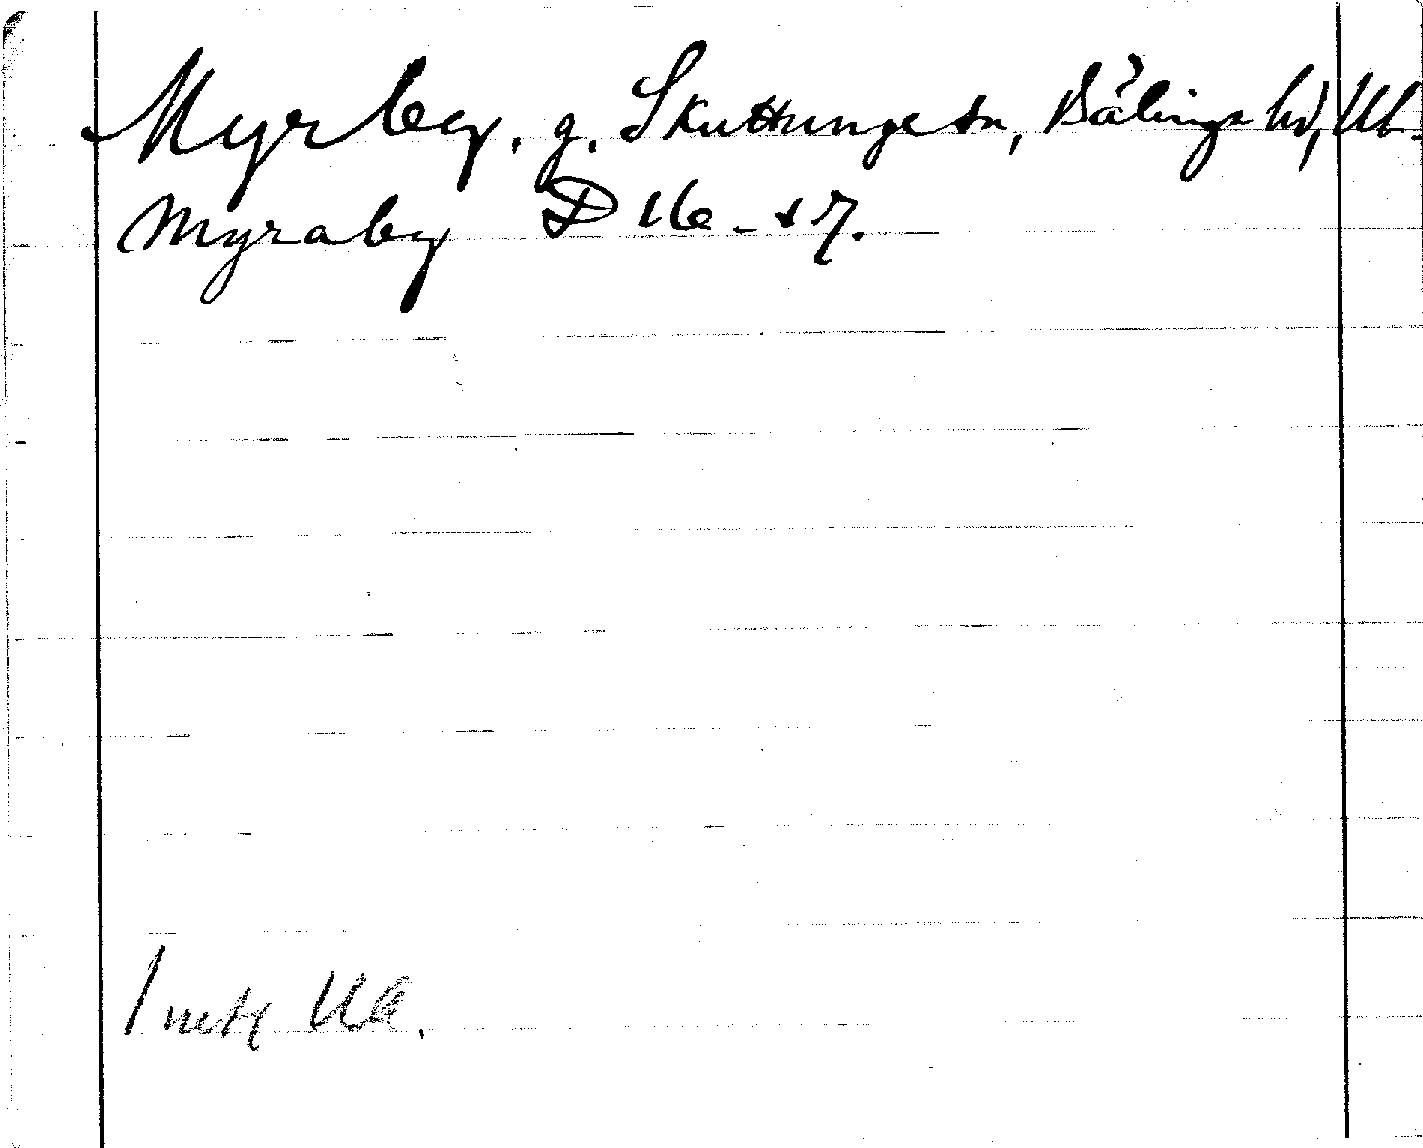 Myrby, g. Skuttunge sn, Bälings hd, Ul.
Myraby D 16 - 17.